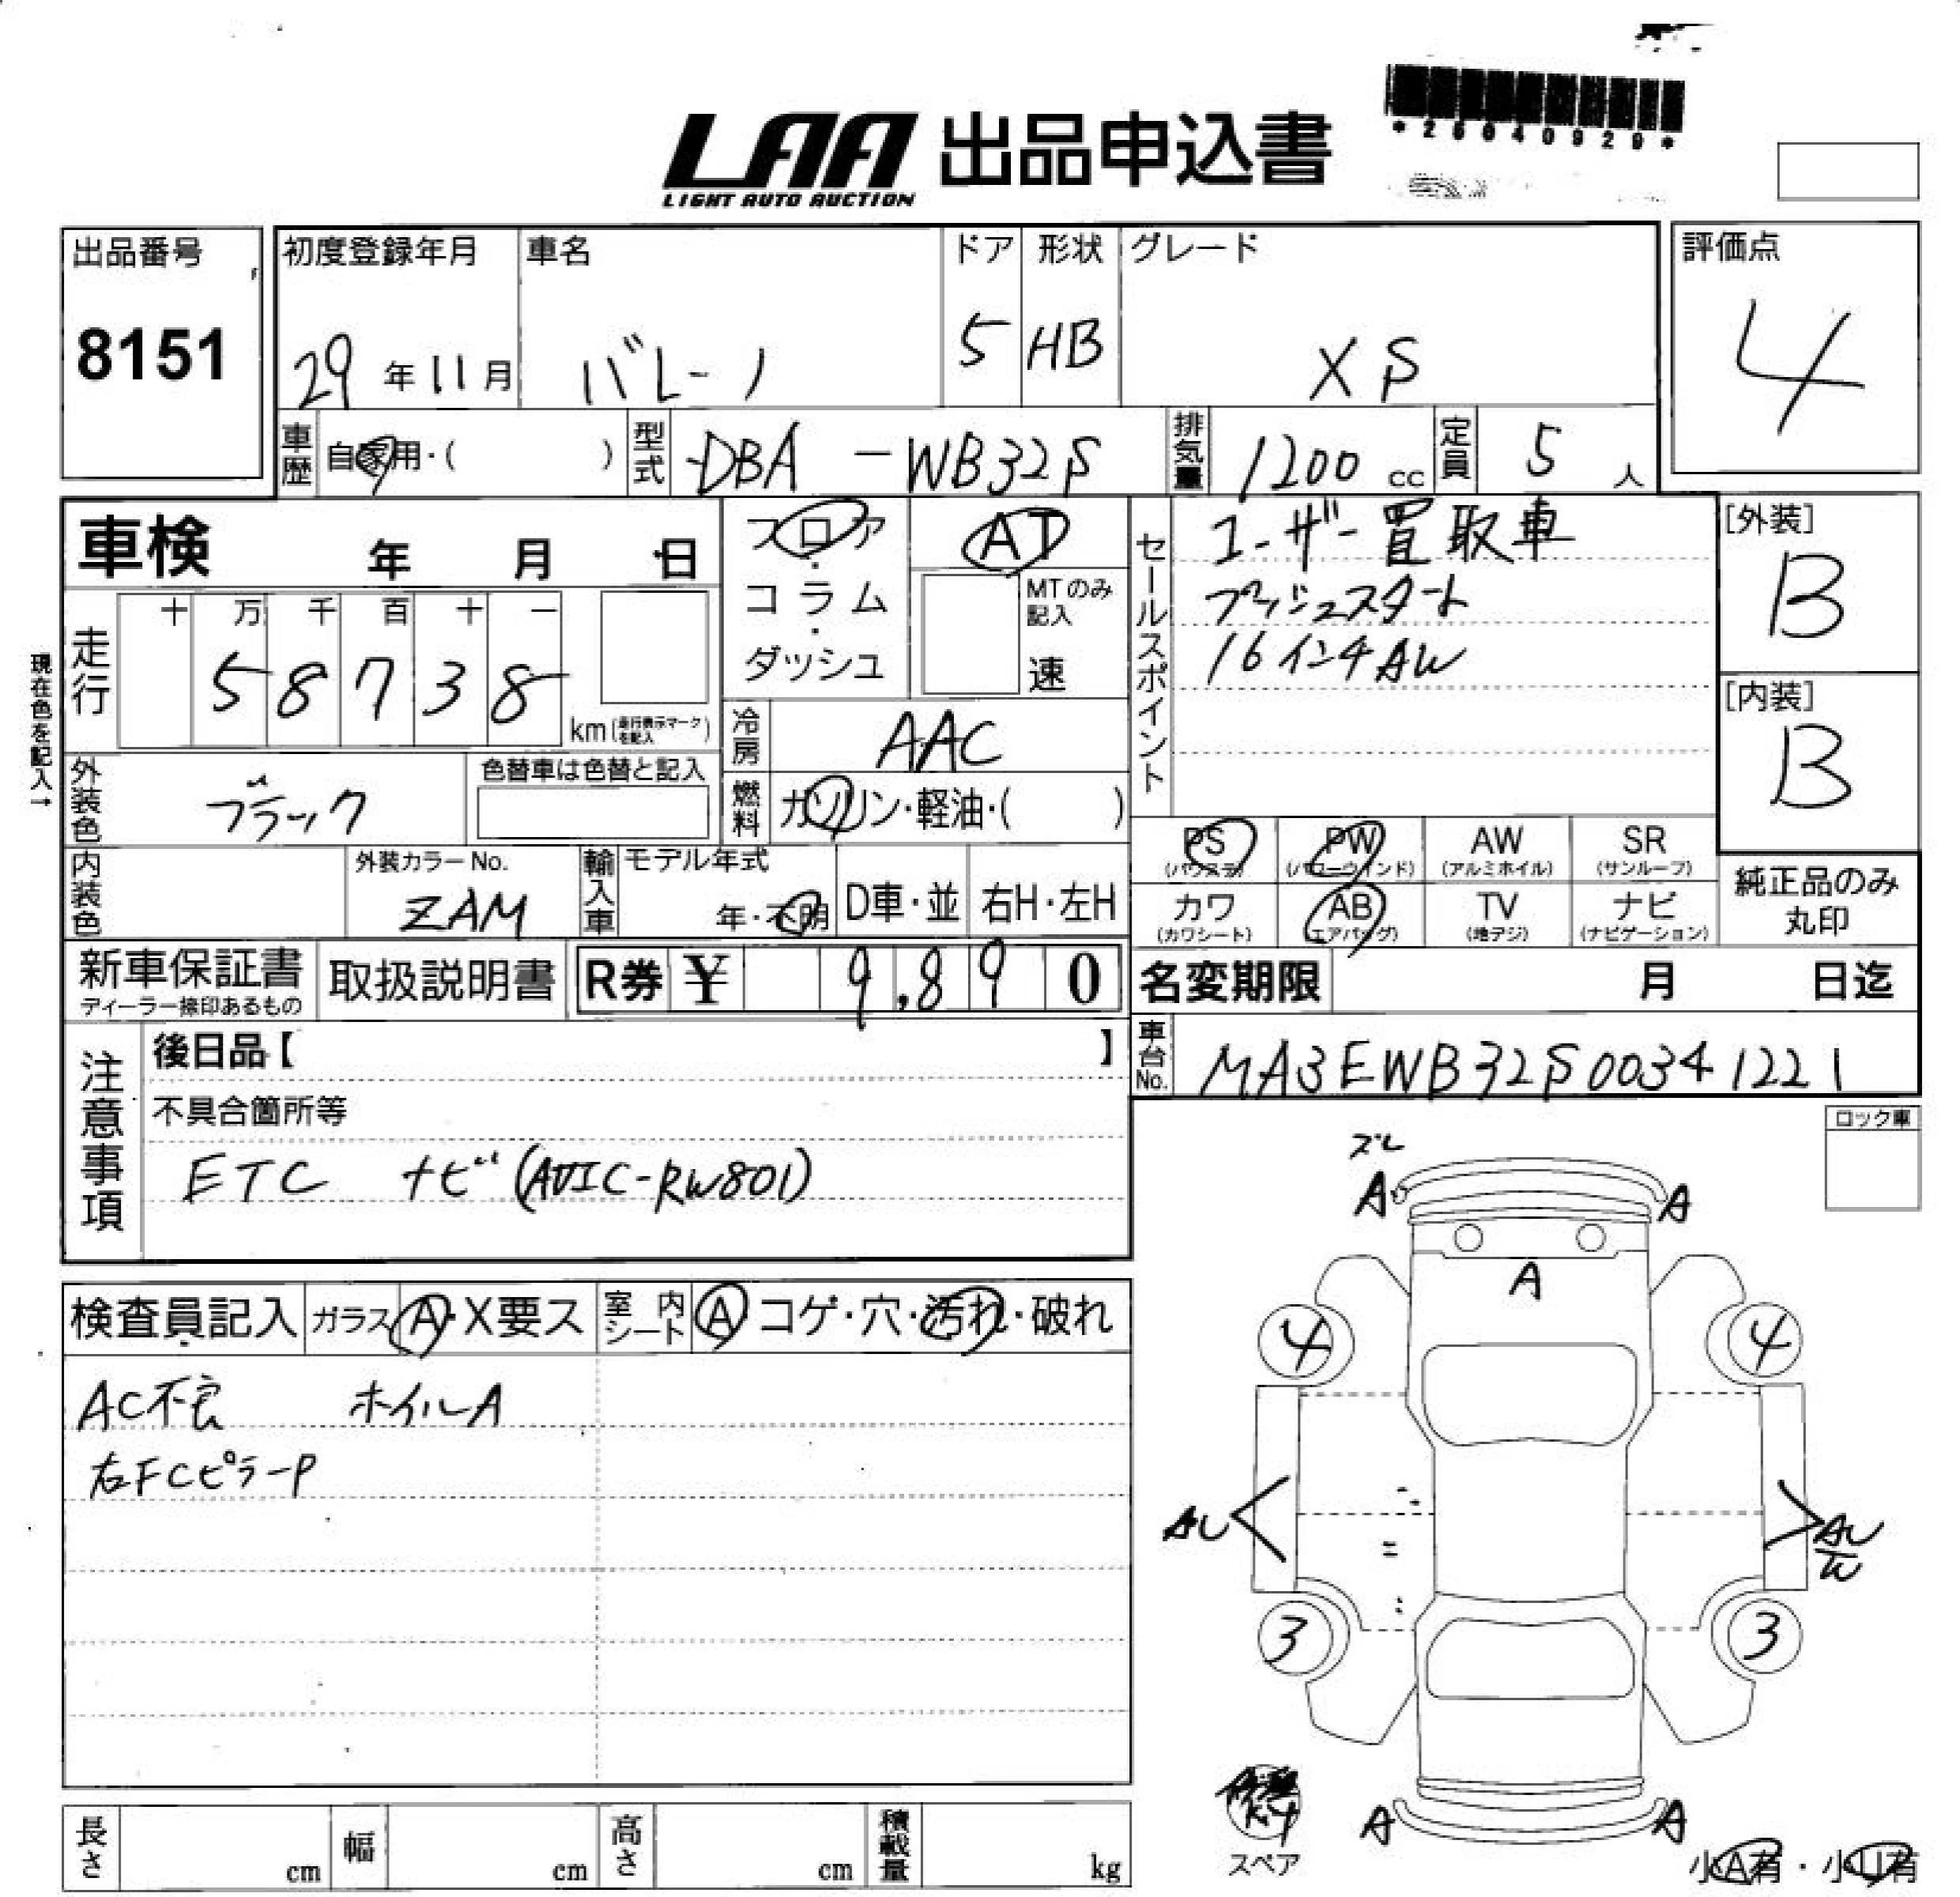 *26040929*
LAA 出品申込書
LIGHT AUTO AUCTION
出品番号
8151
初度登録年月
29年11月
車名
バレーノ
ドア
5
形状
HB
グレード
XS
評価点
4
車歴 自家用・( )
型式 DBA-WB32S
排気量 1200cc
定員 5人
車検 年 月 日
フロア・コラム・ダッシュ
AT
MTのみ記入
速
セールスポイント
ユーザー買取車
プッシュスタート
16インチAW
[外装]
B
[内装]
B
現在色を記入→
走行
十 万 千 百 十 一
5 8 7 3 8
km(走行表示マークを記入)
冷房 AAC
外装色 ブラック
色替車は色替と記入
燃料 ガソリン・軽油・( )
内装色
外装カラーNo.
ZAM
輸入車 モデル年式
年・不明
D車・並
右H・左H
PS (パワステ)
PW (パワーウインド)
AW (アルミホイル)
SR (サンルーフ)
カワ (カワシート)
AB (エアバッグ)
TV (地デジ)
ナビ (ナビゲーション)
純正品のみ
丸印
新車保証書
ディーラー捺印あるもの
取扱説明書
R券 ¥ 9,890
名変期限 月 日迄
車台No. MA3EWB32S00341221
注意事項
後日品【 】
不具合箇所等
ETC ナビ(AVIC-RW801)
ロック車
検査員記入
ガラス A・X要ス
室内シート A・コゲ・穴・汚れ・破れ
AC不良 ホイルA
右FCピラーP
ズレ
A A
A
4 4
AU AU
W
3 3
A A
スペア
小A有・小U有
長さ cm
幅 cm
高さ cm
積載量 kg